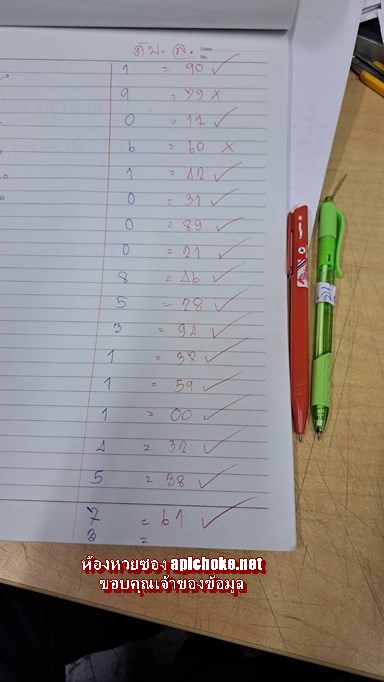 ดับ. ล.
Date
No.
1 = 90 ✓
9 = 79 ×
0 = 17 ✓
6 = 60 ×
1 = 42 ✓
0 = 31 ✓
0 = 89 ✓
0 = 21 ✓
8 = 46 ✓
5 = 28 ✓
3 = 94 ✓
1 = 37 ✓
1 = 59 ✓
1 = 00 ✓
4 = 32 ✓
5 = 38 ✓
7 = 61 ✓
3 =
ห้องหวยซอง apichoke.net
ขอบคุณเจ้าของข้อมูล